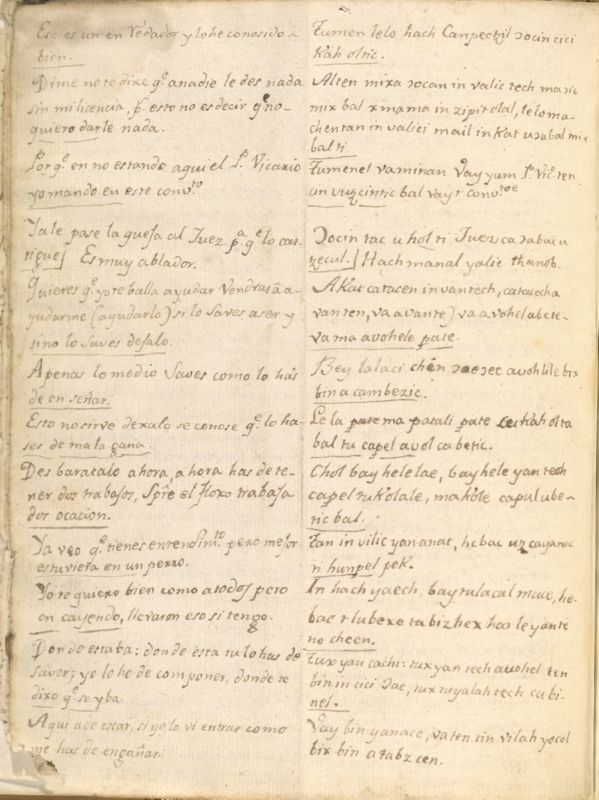 Ese es un en Redador y lo he conosido
bien.
Dime no te dixe q.e anadie le des nada
sin mi licencia, p.r esto no es decir q.e no
quiero darle nada.
Por q.e en no estando aqui el P.e Vicario
yo mando en este conv.to
Ya le pase la quesa al Juez p.a q.e lo cas-
tigue] Es muy ablador.
Quieres q.e yo te balla a yudar Vendras â a-
yudarme (ayudarlo) si lo Saves aser y
sino lo Saves desalo.
Apenas lo medio Saves como lo has
de en señar.
Esto no sirve dexalo se conose q.e lo ha-
ses de mala gana.
Des baratalo ahora, ahora has de te-
ner dos trabajos, Spre el floxo trabaja
dos ocacion.
Ya veo q.e tienes entendim.to pero mejor
estuviera en un perro.
Yo te quiero bien como a todos pero
en cayendo, llevaron eso si tengo.
Donde estaba: donde esta tu lo has de
Savor; yo lo he de componer, donde te
dixo q.e se yba.
Aqui a de estar, si yo lo vi entrar como
me has de engañar.
Tumen lelo hach Canpectzil ɔocin cici
Kah oltic.
Alten mixa ɔocan in valic tech ma ɔic
mix bal x mama in zipit olal, lelo ma-
chentan in valici mail in Kat u ɔabal mix
bal ti.
Tumenel va minan Vay yum P.e Vic.o ten
cin vuɔcintic bal vay t conv.toe
ɔocin tac u hol ti Juez ca ɔabac u
ɔecul.] Hach manal yalic thanob.
A Kat catacen in vantech, catacecha
van ten, va a vante) va a vohel u bete-
va ma a vohele pate.
Bey talaci chen ɔeɔec a vohlile bix
bin a cambezic.
Le la pate ma patali pate cu Kah olta
bal tu capel a vol ca betic.
Choh bay helelae, bay hele yan tech
capel tukolale, makôle capul ube-
tic bal.
Tan in vilic yan anat, hebac uɔ ca yanac
ti hunpel pek.
In hach yaech, bay tulacal mac, he-
bac t lubexe ta bizhex hac le yan te
no cheen.
Tux yan cachi: tux yan tech a vohel ten
bin in cici ɔae, tux tu yalah tech cu bi-
nel.
Vay bin yanace, va ten tin vilah yocol
bix bin a tabzcen.